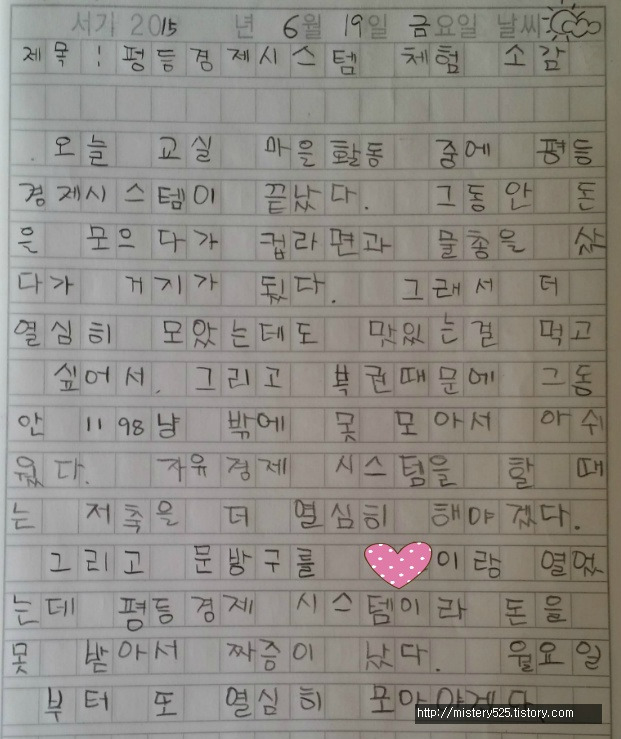 서기 2015 년 6월 19일 금요일 날씨
제목 : 평등경제시스템 체험 소감
오늘 교실 마을활동 중에 평등
경제시스템이 끝났다. 그동안 돈
은 모으다가 컵라면과 물총을 샀
다가 거지가 됬다. 그래서 더
열심히 모았는데도 맛있는걸 먹고
싶어서. 그리고 복권때문에 그동
안 1198냥 밖에 못 모아서 아쉬
웠다. 자유경제 시스텀을 할 때
는 저축을 더 열심히 해야겠다.
그리고 문방구를 이랑 열었
는데 평등경제 시스템이라 돈을
못 받아서 짜증이 났다. 월요일
부터 또 열심히 모아야겠다
http://mistery525.tistory.com